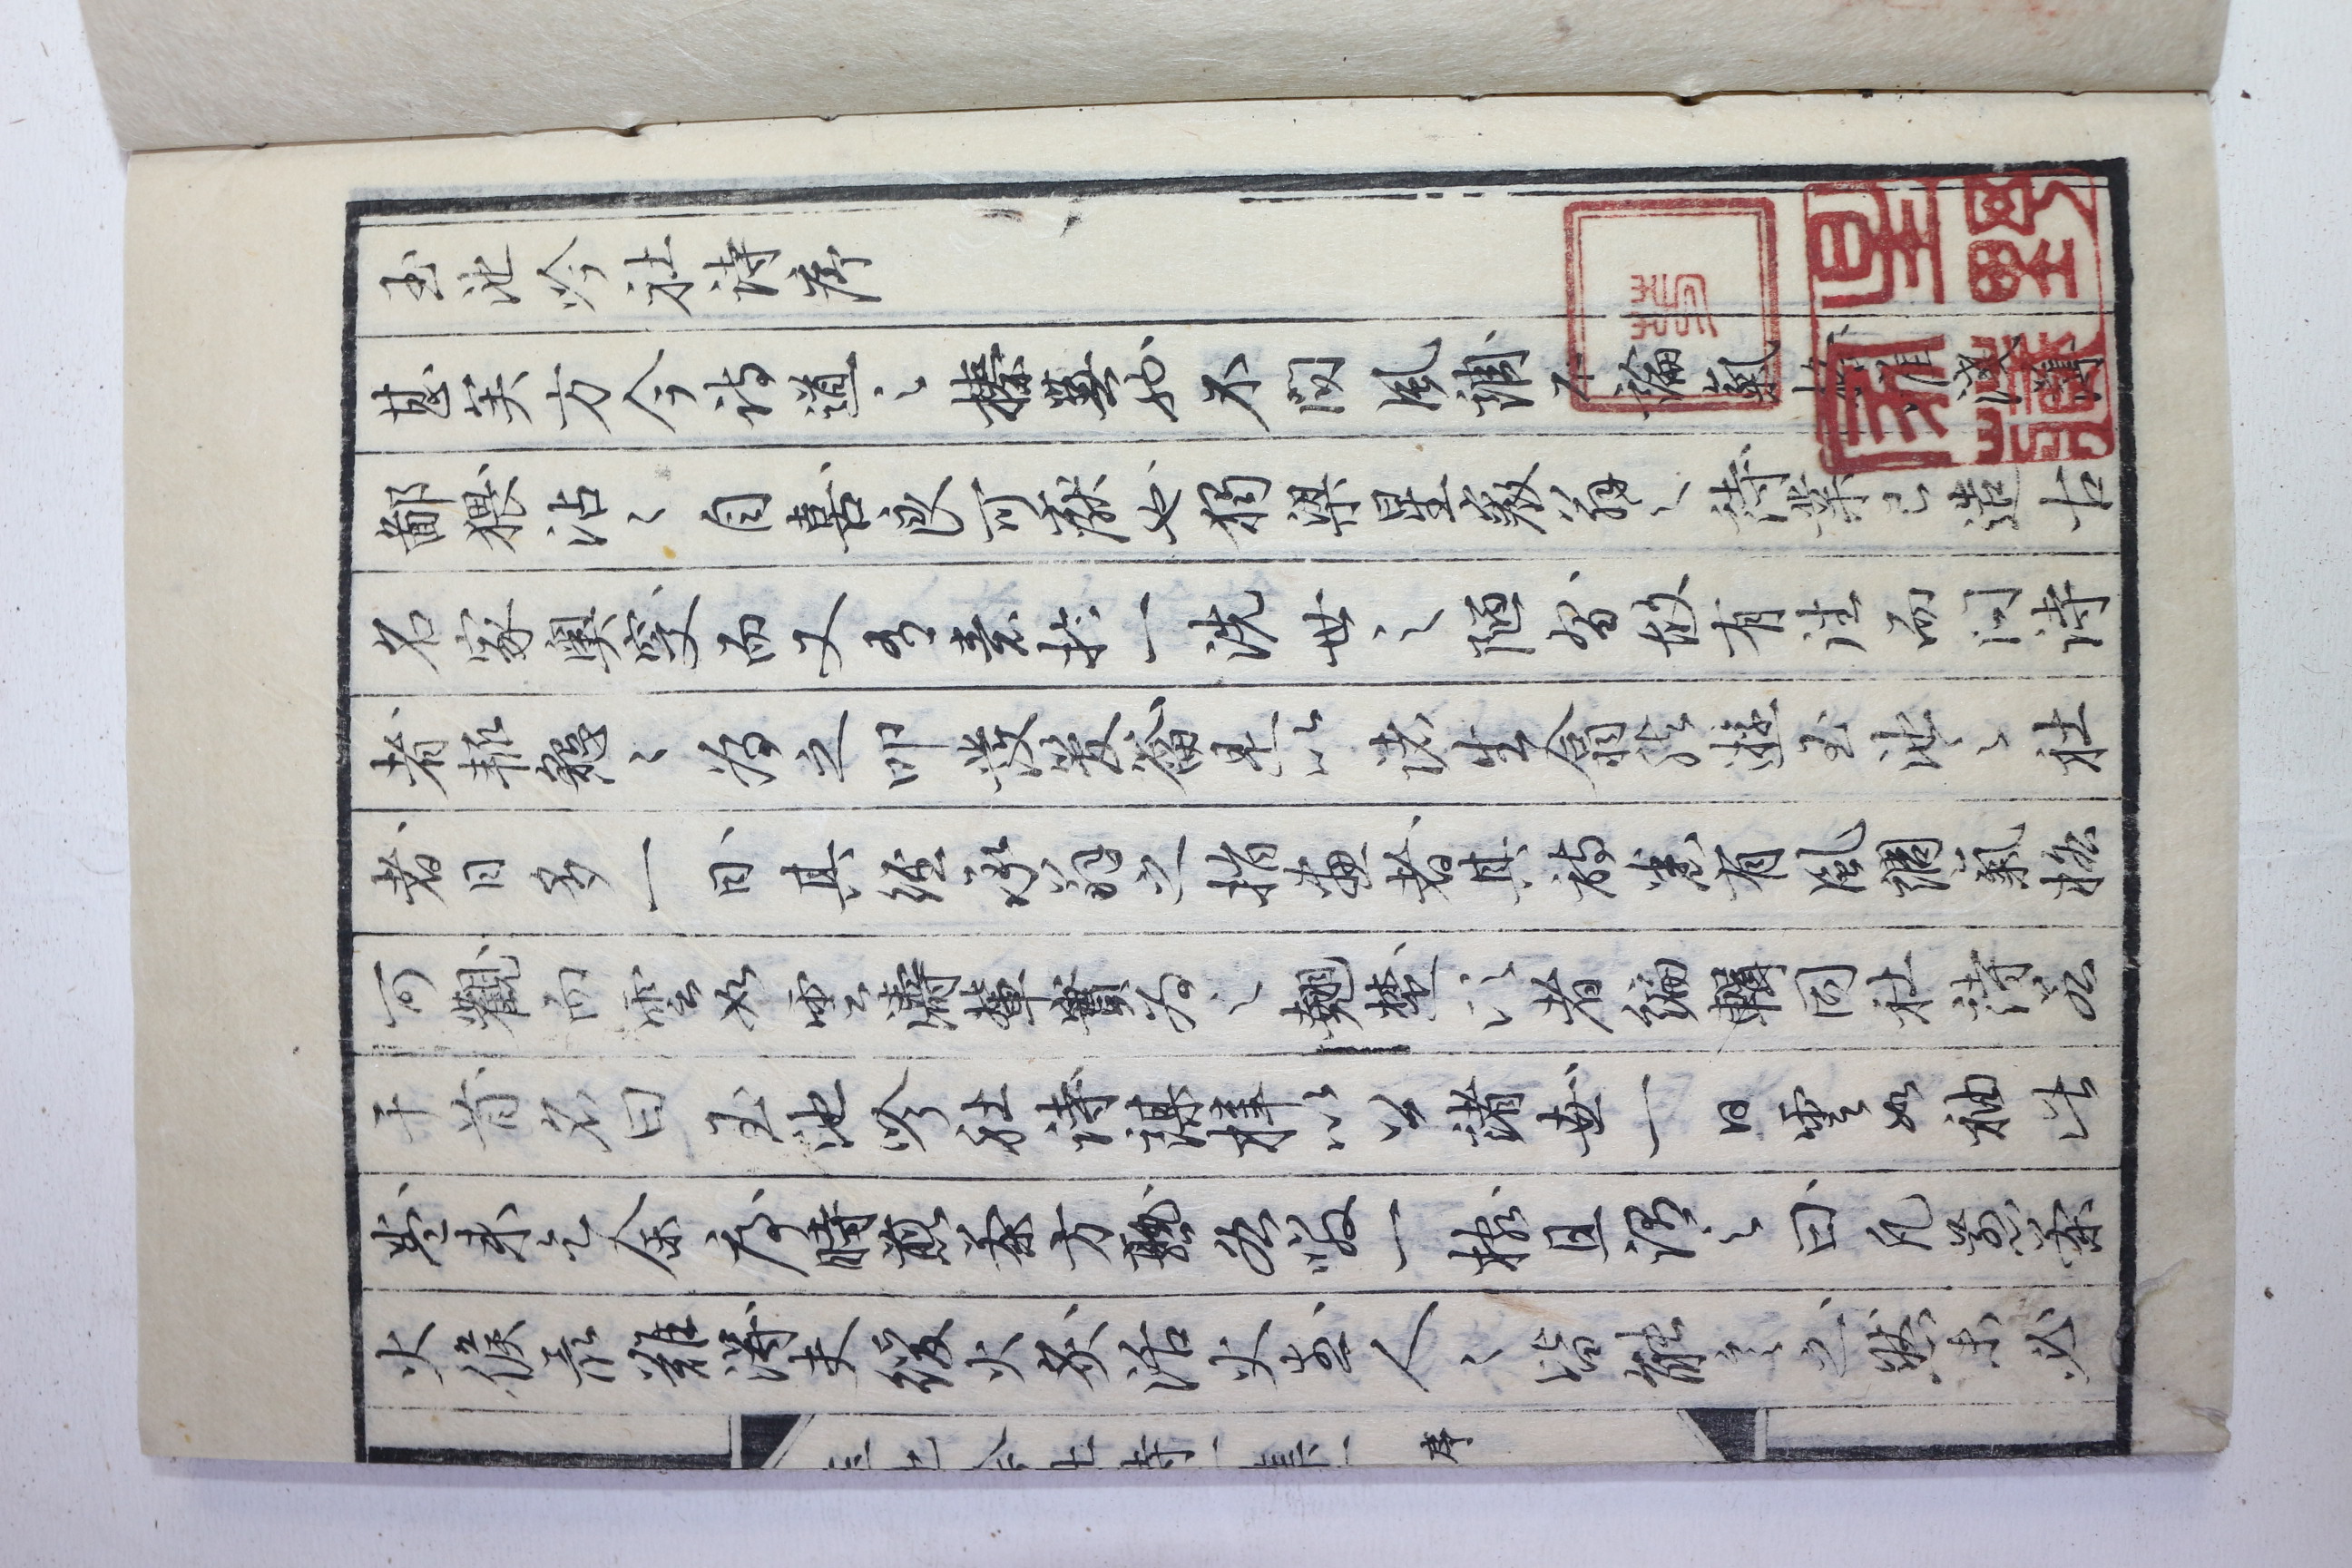 玉池吟社詩序
甚矣方今詩道之榛蕪也不問風調不論氣格唯淺薄
鄙猥沾々自喜良可厭也獨梁星巖翁之詩業已造古
名家奧窔而又有意於一洗世之陋習故有註而問詩
者輒懇々為之叩發篋是以諸生翕然遊玉池之社
者日多一日其經承翁之指畫者其詩悉有風調氣格
可觀而雲如雲濤輩實為之翹楚頃者編輯同社詩若
干首名曰玉池吟社詩謀梓以公諸世一日雲如袖此
卷來乞余序時煎茶方熟各啜一椀且謂之曰凡煎茶
火候最難得夫緩火炙活火煎人々皆能言之然未必
序
星野家藏